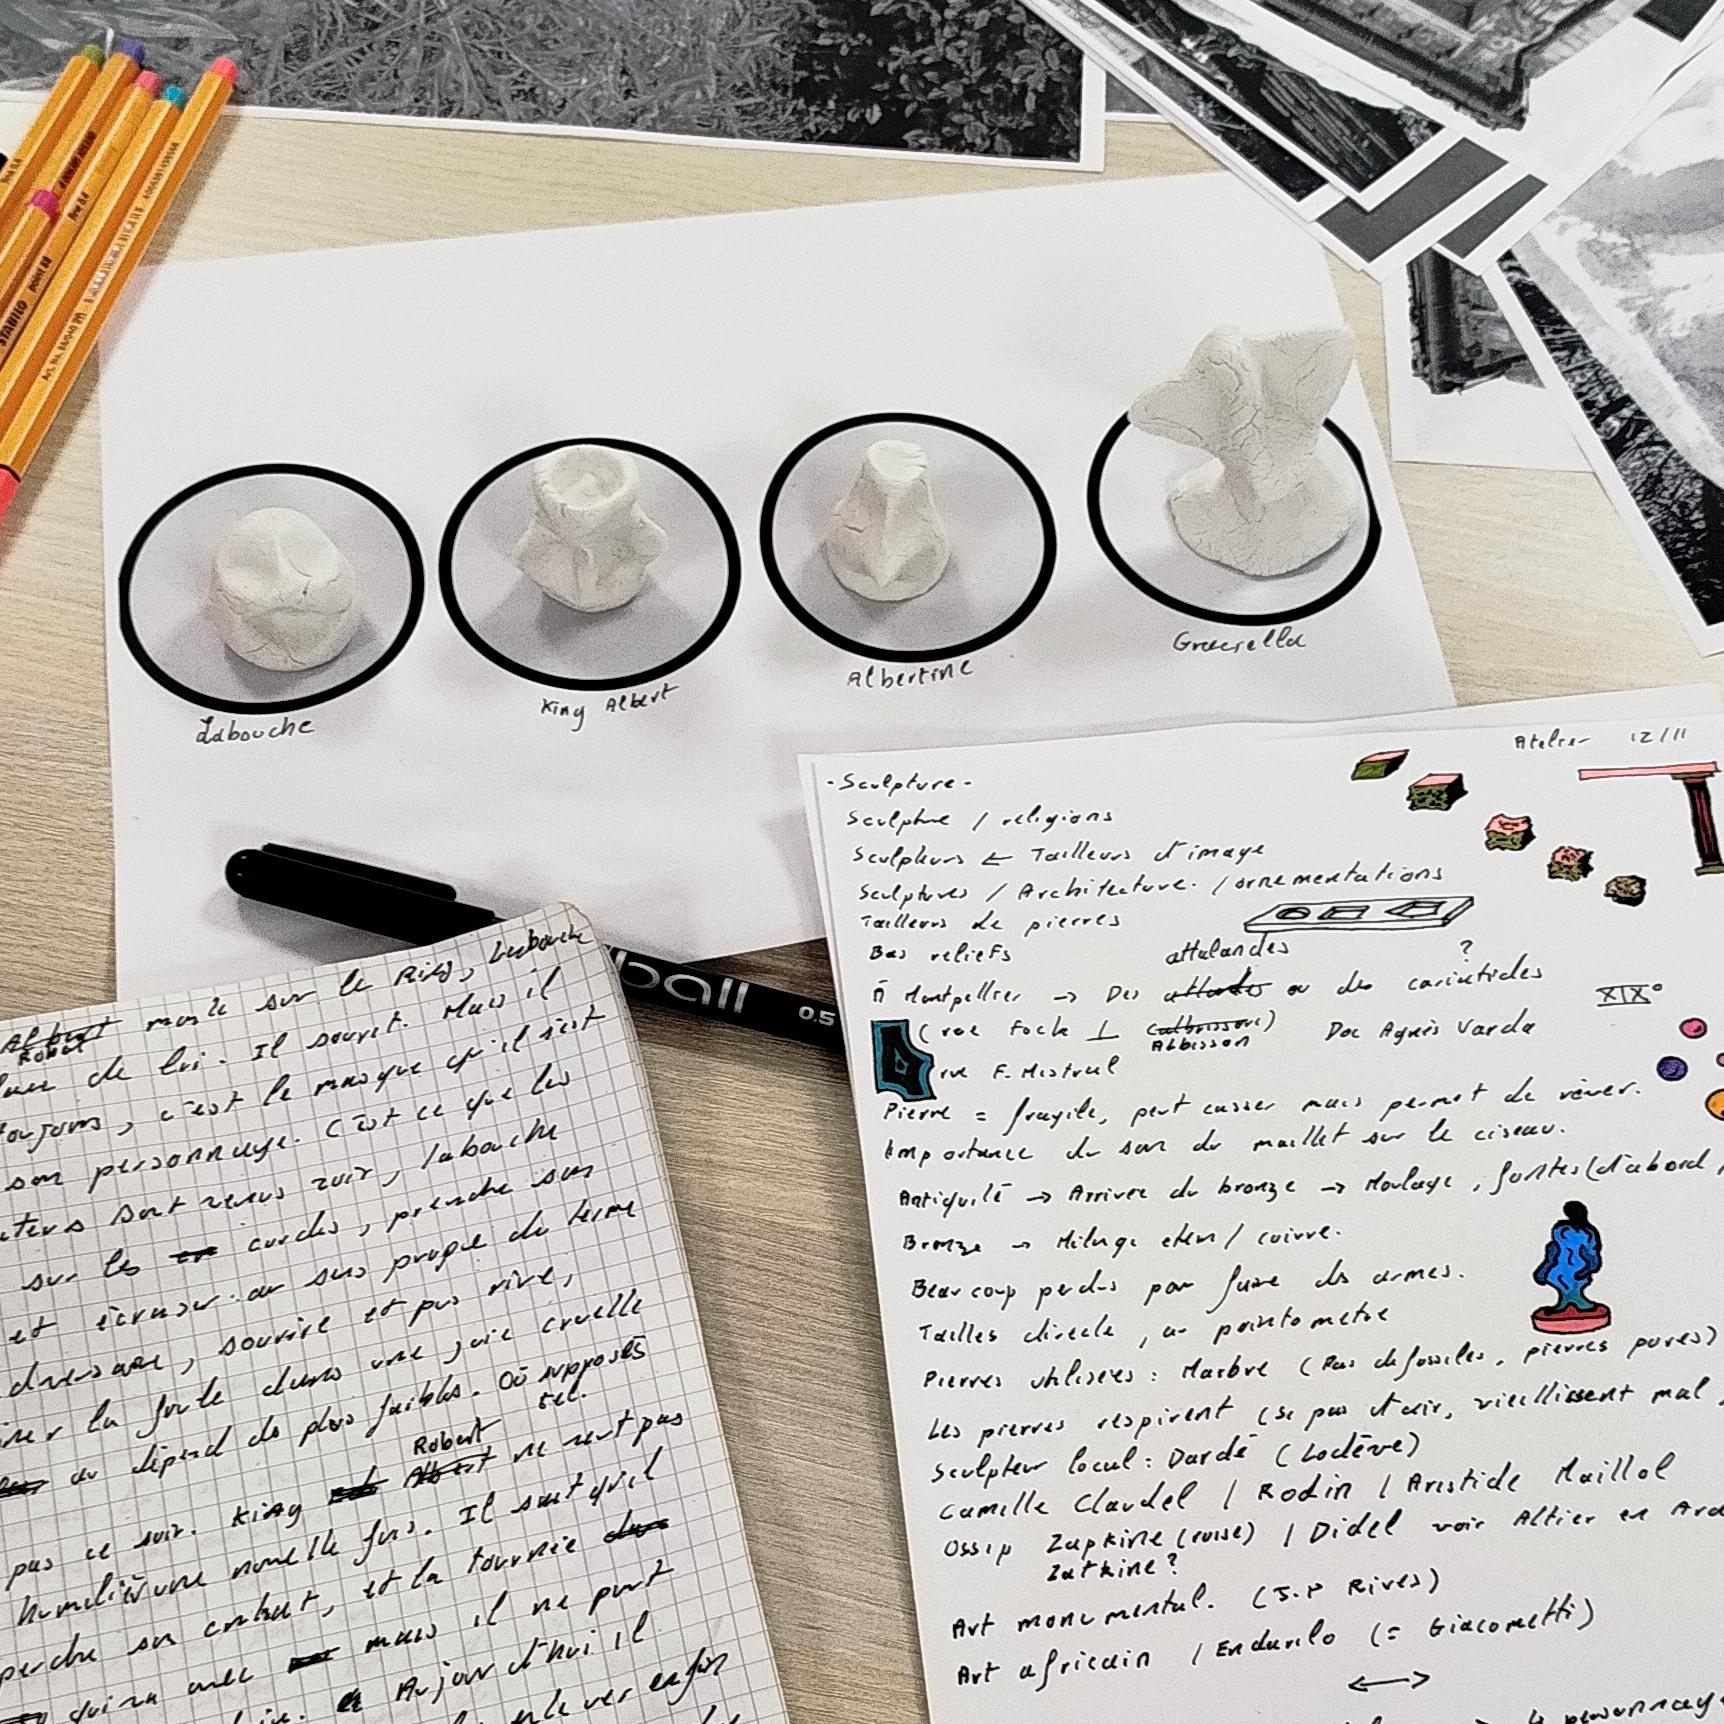 STABILO point 88
Labouche
King Albert
Albertine
Graciella
ball 0.5
Atelier 12/11
- Sculpture -
Sculpture / religions
Sculpteurs ← Tailleurs d'image
Sculptures / Architecture. / ornementations
Tailleurs de pierres
Bas reliefs
attalandes ?
À Montpellier → Des ou des cariatides
XIX°
(rue Foch ⊥ Albisson) Doc Agnès Varda
rue F. Mistral
Pierre = fragile, peut casser mais permet de rêver.
Importance du son du maillet sur le ciseau.
Antiquité → Arrivée du bronze → Moulage, fontes (d'abord
Bronze → Mélange etain / cuivre.
Beaucoup perdus pour faire des armes.
Tailles directe, au pointometre
Pierres utilisées : Marbre (Pas de fossiles, pierres pures)
Les pierres respirent (si pas d'air, vieillissent mal,
Sculpteur local : Dardé (Lodève)
Camille Claudel / Rodin / Aristide Maillol
Ossip Zapkine (russe) / Didel voir Altier en
Zatkine ?
Art monumental. (J.P Rives)
Art africain / Endurilo (= Giacometti)
↔
4 personnages
Albert monte sur le Ring, Labouche
Robert
de lui. Il sourit. Mais il
toujours, c'est le masque qu'il s'est
son personnage. C'est ce que les
sont venus voir, Labouche
sur les cordes, prendre son
et écraser au sens propre du terme
sourire et pas rire,
la foule dans une joie cruelle
au dépend de plus faibles. Où supposés
tel.
Robert
pas ce soir. King Albert ne veut pas
humilié une nouvelle fois. Il sait qu'il
perdra son combat, et la tournée
avec mais il ne peut
Aujourd'hui il
enfin